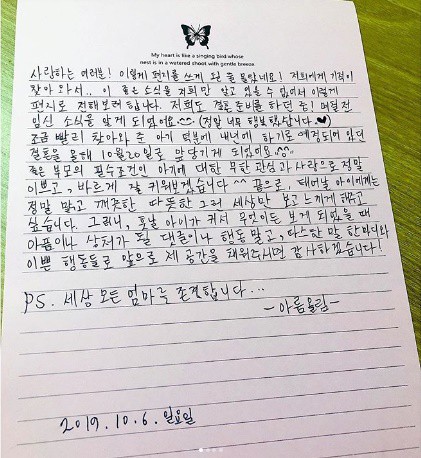 My heart is like a singing bird whose
nest is in a watered shoot with gentle breeze.
사랑하는 여러분! 이렇게 편지를 쓰게 된 날 들었네요! 저희에게 기적이
찾아 와서.., 이 좋은 소식을 저희만 알고 있을 수 없어서 이렇게
편지로 전해보려 합니다. 저희도 결혼준비를 하던 중! 며칠전
임신 소식을 알게 되었어요^^ (정말 너무 행복했답니다.♥)
조금 빨리 찾아와 준 아기 덕분에 내년에 하기로 예정되어 있던
결혼을 올해 10월 20일로 앞당기게 되었어요^^
좋은 부모의 필수조건인 아기에 대한 무한 관심과 사랑으로 정말
이쁘고, 바르게 잘 키워보겠습니다 ^^ 끝으로, 태어날 아이에게는
정말 맑고 깨끗한 따뜻한 그런 세상만 보고 느끼게 해주고
싶습니다. 그러니, 훗날 아이가 커서 무엇이든 보게 되었을 때
아픔이나 상처가 될 댓글이나 행동 말고, 따스한 말 한마디와
이쁜 행동들로 앞으로 제 공간을 채워주시면 감사하겠습니다!
PS. 세상 모든 엄마를 존경합니다...
-아름올림-
2019. 10. 6. 일요일